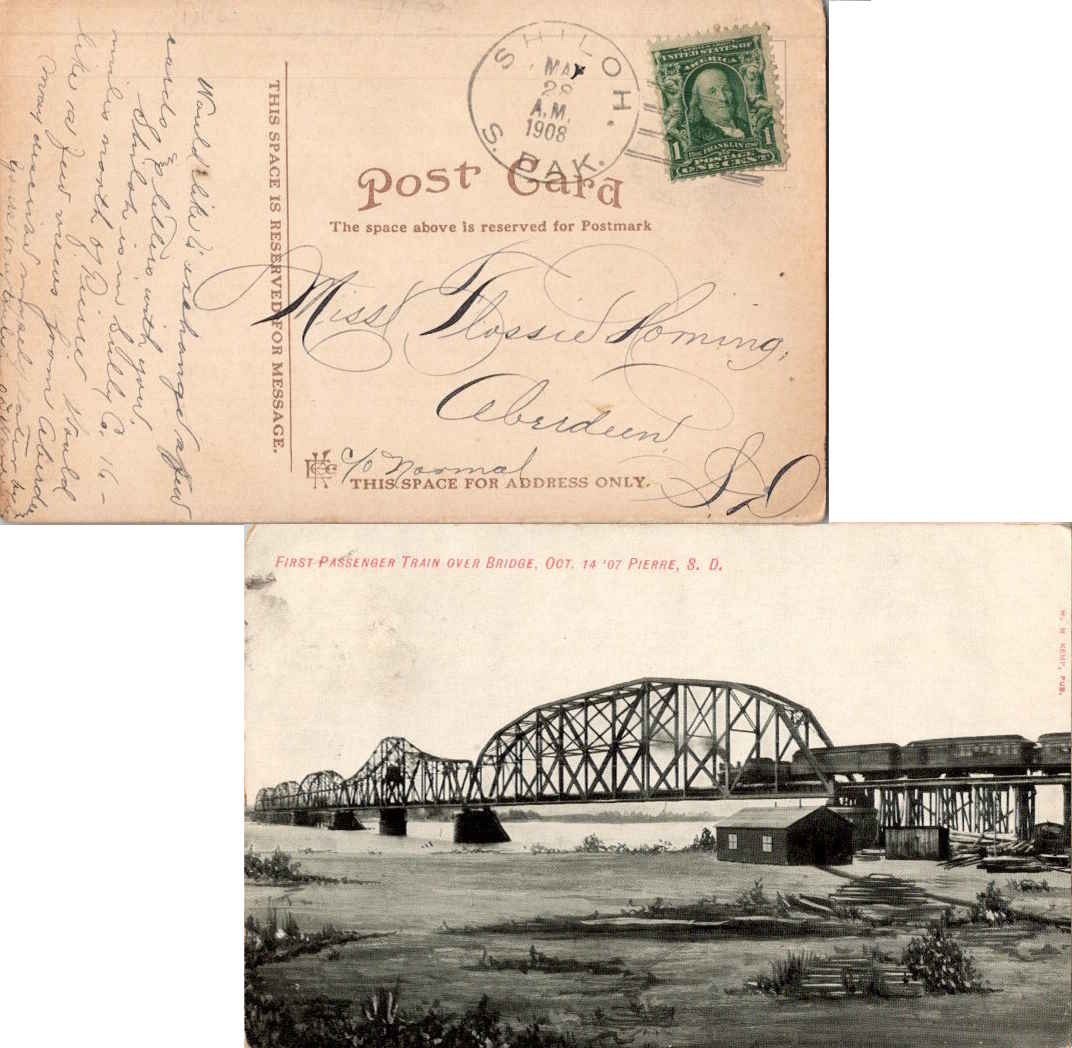 SHILOH.
MAY
28
A.M.
1908
S. DAK.
UNITED STATES OF
AMERICA
FRANKLIN
1 POSTAGE 1
ONE CENT
Post Card
The space above is reserved for Postmark
THIS SPACE IS RESERVED FOR MESSAGE.
Would like to exchange a few
cards & letters with you.
Shiloh is in Sully Co. 16-
miles north of Pierre Would
like a few views from Aberdeen
may
Miss Flossie Homing,
Aberdeen
S.D
c/o Normal
THIS SPACE FOR ADDRESS ONLY.
FIRST PASSENGER TRAIN OVER BRIDGE, OCT. 14 '07 PIERRE, S. D.
PUB.